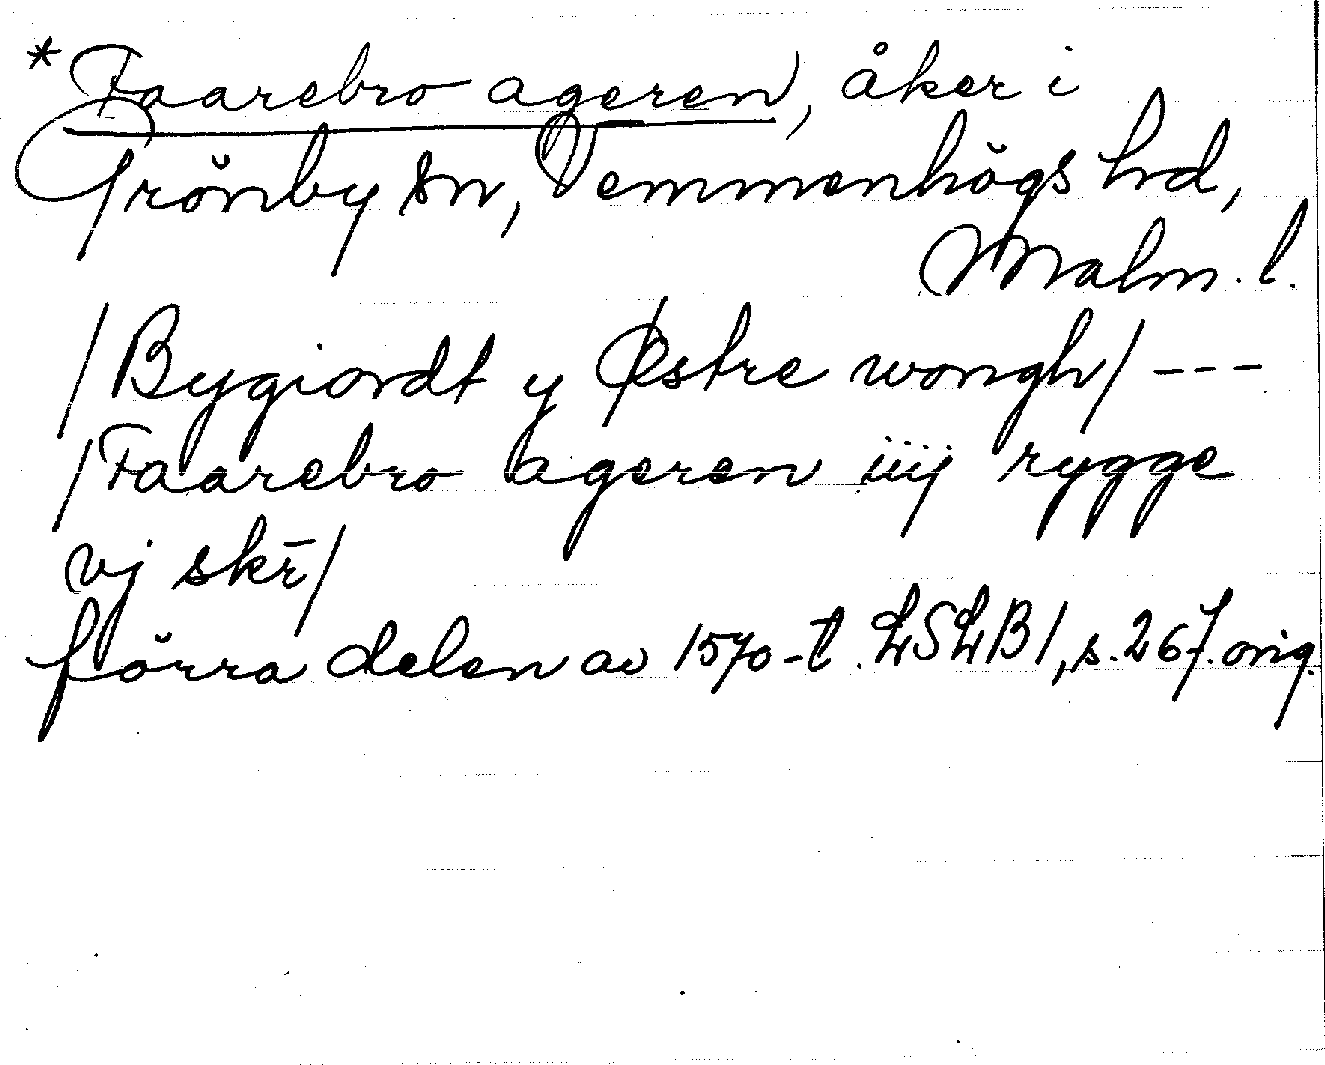 *Faarebro ageren, åker i
Grönby sn, Vemmenhögs hd,
Malm. l.
/Bygiordt y Østre wongh/ ---
/Faarebro ageren iiij rygge
vj skr̄/
förra delen av 1570-t. LSLB 1, s. 267. orig.